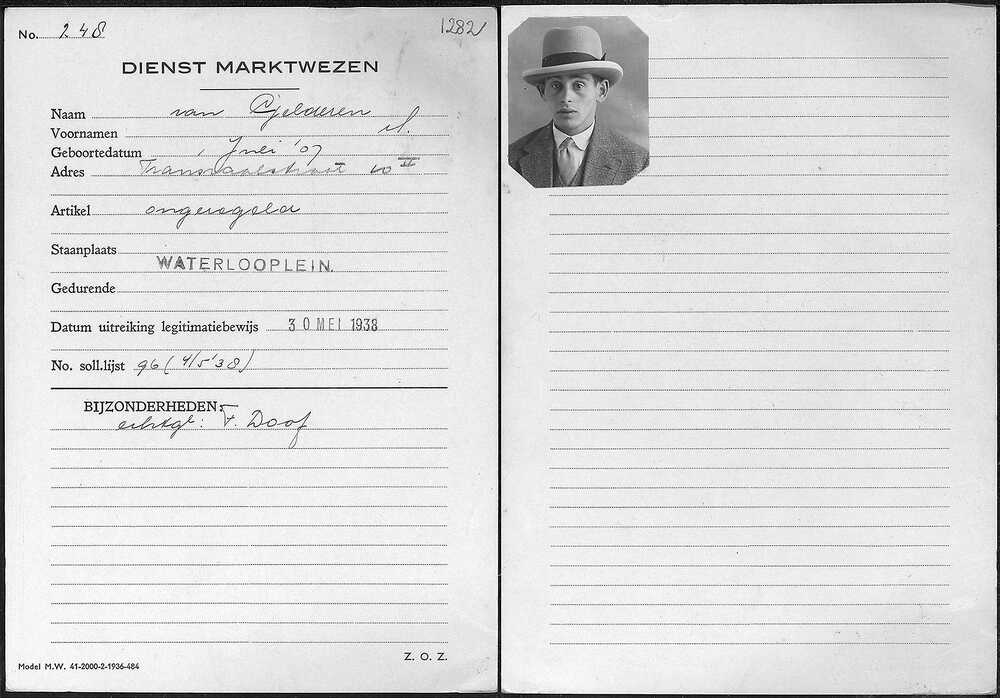 No. 248
1282
DIENST MARKTWEZEN
Naam van Gelderen
Voornamen
Geboortedatum Juli '07
Adres Transvaalstraat 10 II
Artikel ongeregeld
Staanplaats
WATERLOOPLEIN.
Gedurende
Datum uitreiking legitimatiebewijs 30 MEI 1938
No. soll.lijst 96 (4/5'38)
BIJZONDERHEDEN:
echtgt: F. Doof
Model M.W. 41-2000-2-1936-484
Z. O. Z.